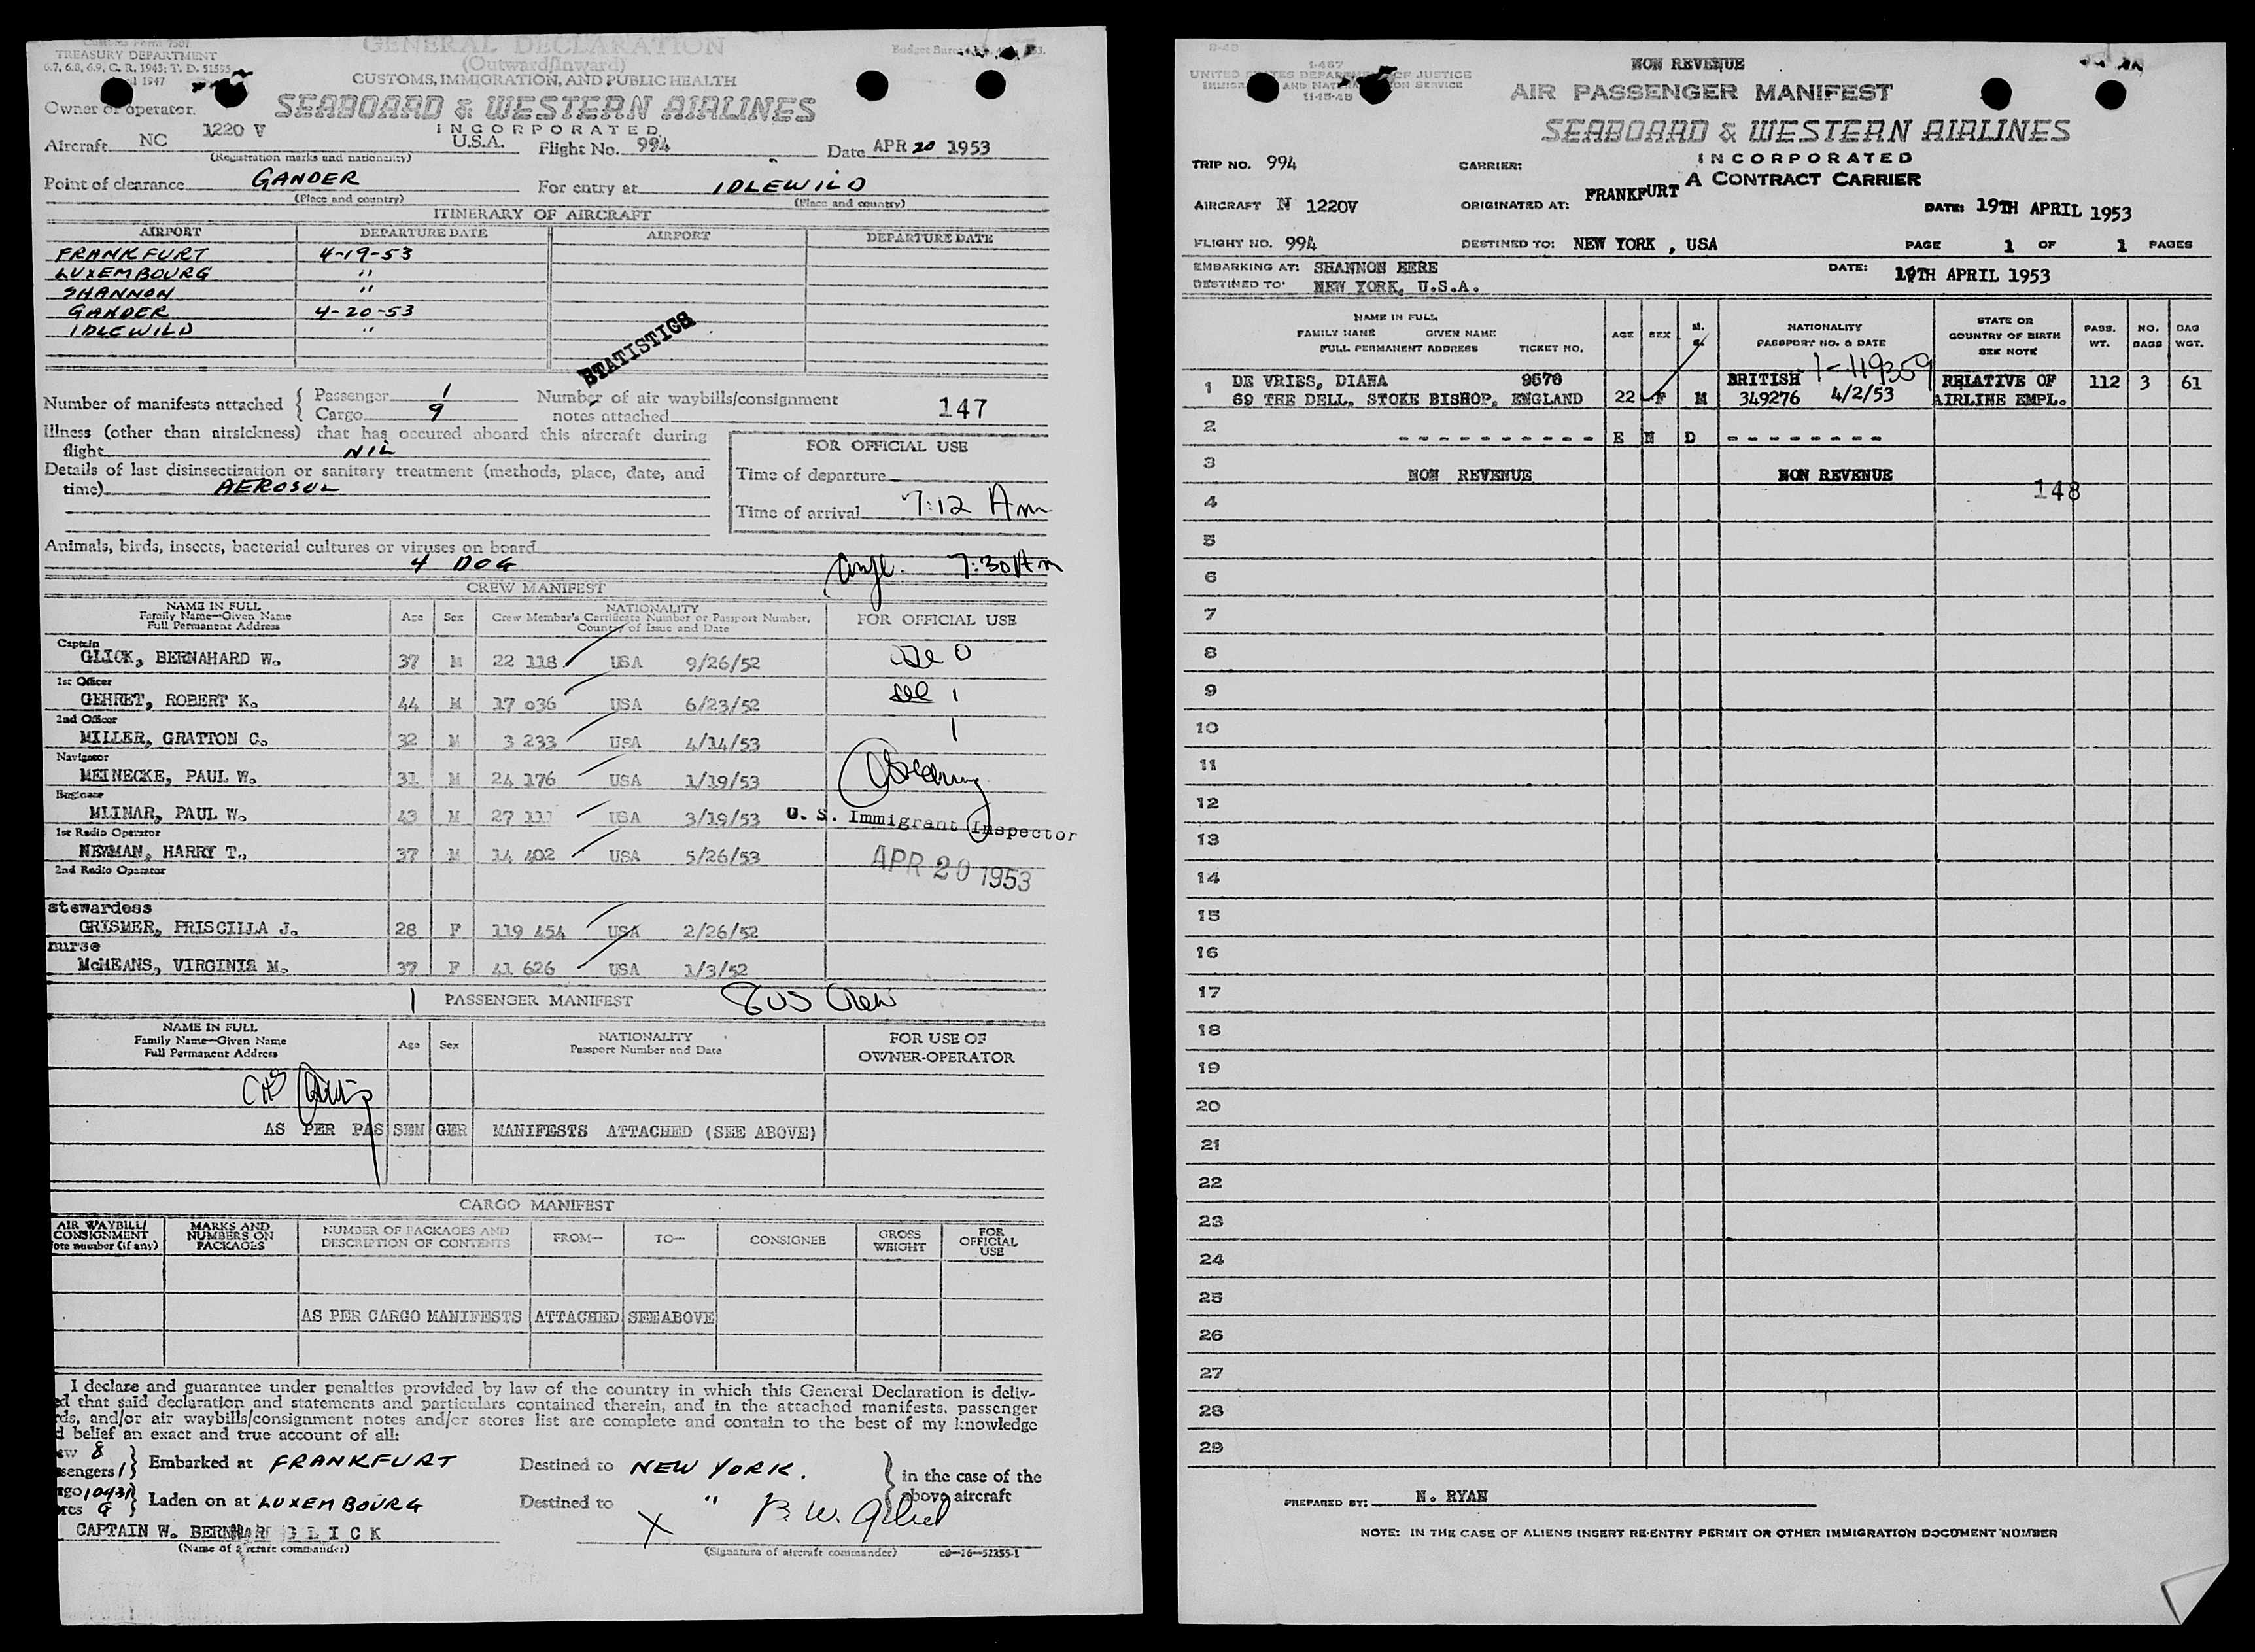 Customs Form 7507
TREASURY DEPARTMENT
6.7, 6.8, 6.9, C. R. 1943; T. D. 51595
1947
GENERAL DECLARATION
(Outward/Inward)
CUSTOMS, IMMIGRATION, AND PUBLIC HEALTH
Owner or operator.
SEABOARD & WESTERN AIRLINES
INCORPORATED
Aircraft NC 1220 V U.S.A. Flight No. 994 Date APR 20 1953
(Registration marks and nationality)
Point of clearance GANDER For entry at IDLEWILD
(Place and country) (Place and country)
ITINERARY OF AIRCRAFT
AIRPORT DEPARTURE DATE AIRPORT DEPARTURE DATE
FRANKFURT 4-19-53
LUXEMBOURG "
SHANNON "
GANDER 4-20-53
IDLEWILD "
STATISTICS
Number of manifests attached { Passenger 1 Cargo 9
Number of air waybills/consignment notes attached 147
Illness (other than airsickness) that has occured aboard this aircraft during
flight NIL
Details of last disinsectization or sanitary treatment (methods, place, date, and
time) AEROSOL
FOR OFFICIAL USE
Time of departure
Time of arrival 7:12 Am
Animals, birds, insects, bacterial cultures or viruses on board
4 DOG
7:30 Am
CREW MANIFEST
NAME IN FULL
Family Name—Given Name
Full Permanent Address
Age Sex
NATIONALITY
Crew Member's Certificate Number or Passport Number,
Country of Issue and Date
FOR OFFICIAL USE
Captain
GLICK, BERNAHARD W. 37 M 22 118 USA 9/26/52
1st Officer
GEHRET, ROBERT K. 44 M 17 036 USA 6/23/52
2nd Officer
MILLER, GRATTON C. 32 M 3 233 USA 4/14/53
Navigator
MEINECKE, PAUL W. 31 M 24 176 USA 1/19/53
Engineer
MLINAR, PAUL W. 43 M 27 111 USA 3/19/53
U. S. Immigrant Inspector
1st Radio Operator
NEWMAN, HARRY T. 37 M 14 402 USA 5/26/53
APR 20 1953
2nd Radio Operator
stewardess
GRISMER, PRISCILLA J. 28 F 119 454 USA 2/26/52
nurse
McMEANS, VIRGINIA M. 37 F 41 626 USA 1/3/52
1 PASSENGER MANIFEST 8 US Crew
NAME IN FULL
Family Name—Given Name
Full Permanent Address
Age Sex
NATIONALITY
Passport Number and Date
FOR USE OF
OWNER-OPERATOR
AS PER PASSENGER MANIFESTS ATTACHED (SEE ABOVE)
CARGO MANIFEST
AIR WAYBILL/
CONSIGNMENT
ote number (if any)
MARKS AND
NUMBERS ON
PACKAGES
NUMBER OF PACKAGES AND
DESCRIPTION OF CONTENTS
FROM—
TO—
CONSIGNEE
GROSS
WEIGHT
FOR
OFFICIAL
USE
AS PER CARGO MANIFESTS ATTACHED SEE ABOVE
I declare and guarantee under penalties provided by law of the country in which this General Declaration is deliv-
ed that said declaration and statements and particulars contained therein, and in the attached manifests, passenger
rds, and/or air waybills/consignment notes and/or stores list are complete and contain to the best of my knowledge
d belief an exact and true account of all:
ew 8
sengers 1 } Embarked at FRANKFURT Destined to NEW YORK.
in the case of the
above aircraft
rgo
res } Laden on at LUXEMBOURG Destined to "
X
CAPTAIN W. BERNHARD GLICK
(Name of aircraft commander)
(Signature of aircraft commander) c0—16—52355-1
I-467
UNITED STATES DEPARTMENT OF JUSTICE
IMMIGRATION AND NATURALIZATION SERVICE
11-15-48
NON REVENUE
AIR PASSENGER MANIFEST
SEABOARD & WESTERN AIRLINES
INCORPORATED
A CONTRACT CARRIER
TRIP NO. 994 CARRIER:
AIRCRAFT N 1220V ORIGINATED AT: FRANKFURT DATE: 19TH APRIL 1953
FLIGHT NO. 994 DESTINED TO: NEW YORK , USA PAGE 1 OF 1 PAGES
EMBARKING AT: SHANNON EERE DATE: 19TH APRIL 1953
DESTINED TO: NEW YORK, U.S.A.
NAME IN FULL
FAMILY NAME GIVEN NAME
FULL PERMANENT ADDRESS TICKET NO.
AGE SEX M. S.
NATIONALITY
PASSPORT NO. & DATE
STATE OR
COUNTRY OF BIRTH
SEE NOTE
PASS. WT.
NO. BAGS
BAG WGT.
1-119359
1 DE VRIES, DIANA 9570 BRITISH RELATIVE OF 112 3 61
69 THE DELL, STOKE BISHOP, ENGLAND 22 F M 349276 4/2/53 AIRLINE EMPL.
2 - - - - - - - - - - E N D - - - - - - - -
3 NON REVENUE NON REVENUE
148
4
5
6
7
8
9
10
11
12
13
14
15
16
17
18
19
20
21
22
23
24
25
26
27
28
29
PREPARED BY: N. RYAN
NOTE: IN THE CASE OF ALIENS INSERT RE-ENTRY PERMIT OR OTHER IMMIGRATION DOCUMENT NUMBER